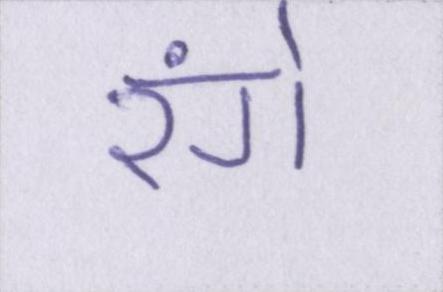 रंगे